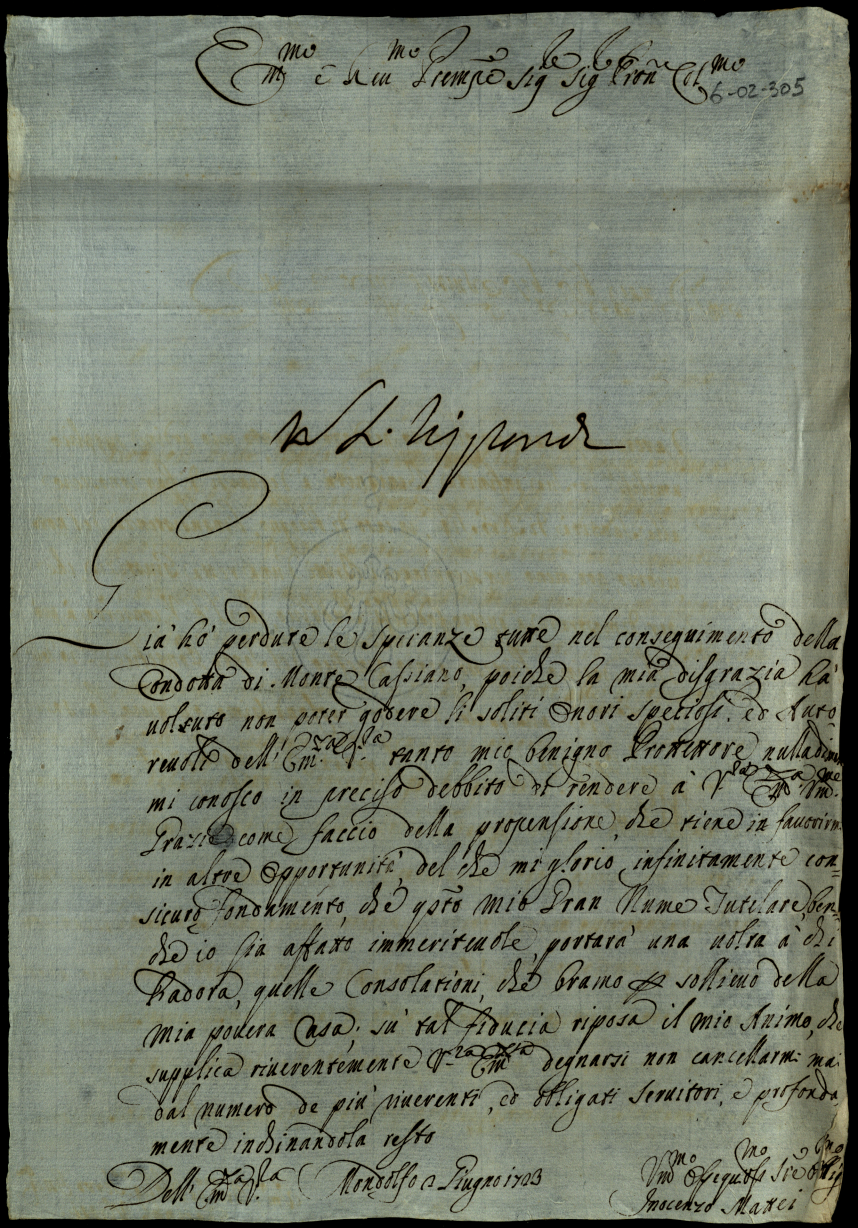 Em.mo e Rev.mo Principe Sig.re Sig.re Pron.e Col.mo
6-02-305
Già hó perdute le speranze tutte nel conseguimento della
Condotta di Monte Cassiano, poiche la mia disgrazia hà
uolsuto non poter godere li soliti onori speciosi, ed Auto
reuoli dell' Em.za S.a tanto mio benigno Protettore, nulladimen
mi conosco in preciso debbito di rendere à V.ra Em.za Um.me
Grazie come faccio della propensione, che tiene in fauorirm
in altre opportunità, del che mi glorio infinitamente con
sicuro fondamento, che q.sto mio Gran Nume Tutelare, ben
che io sia affatto immeriteuole, portarà una uolta à chi
l'adora, quelle Consolationi, che bramo p sollieuo della
mia pouera Casa; sù tal fiducia riposa il mio Animo, che
supplica riuerentemente V.ra Em.za degnarsi non cancellarmi mai
dal numero de più riuerenti, ed obligati seruitori, e profonda
mente inchinandola resto
Dell' Em.za V.a Mondolfo 2 Giugno 1723
Um.mo Ossequios.mo Se.e Oblig.mo
Inocenzo Mattei